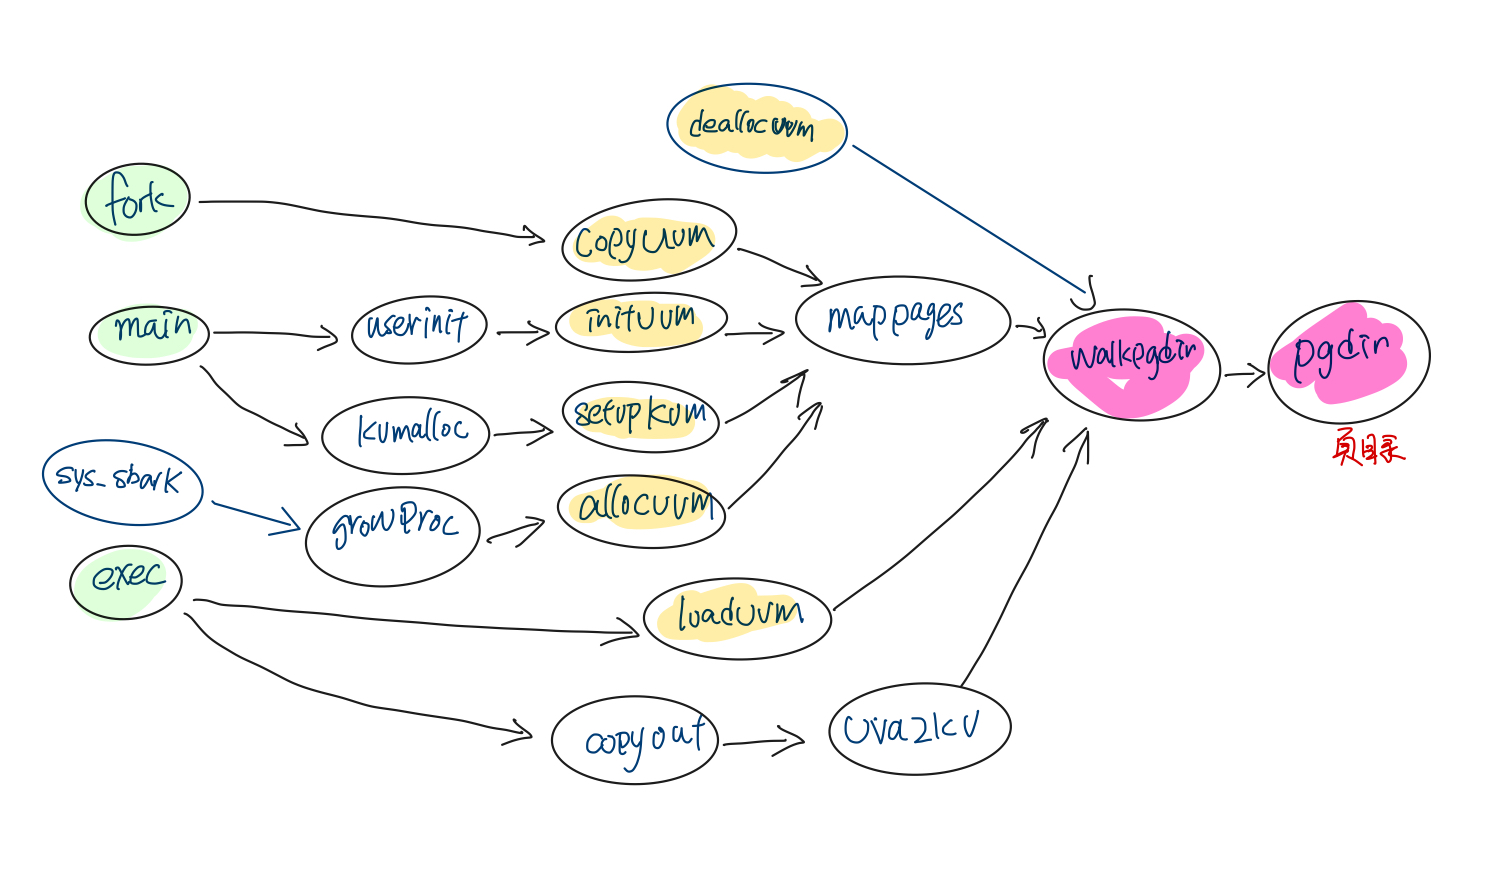 deallocuvm
fork
copyuvm
main
userinit
inituvm
mappages
walkpgdir
pgdir
页目录
kvmalloc
setupkvm
sys_sbark
growproc
allocuvm
exec
loaduvm
copyout
uva2kv